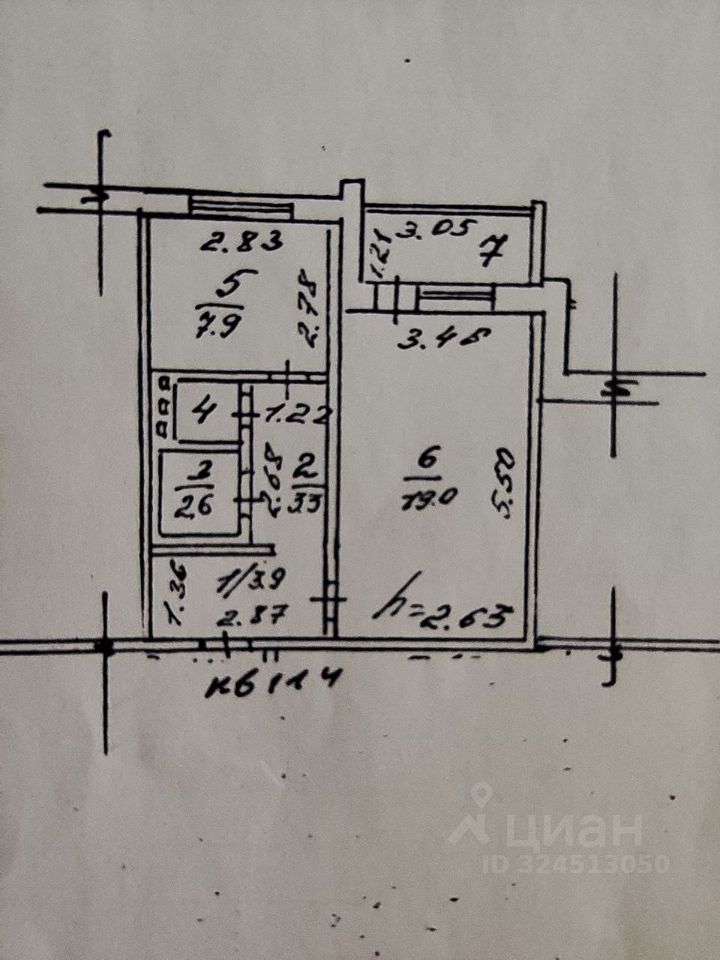 2.83
5
7.9
2.78
3.05
1.21
7
3.48
4
1.22
3
2.6
2.68
2
3.3
6
19.0
5.50
1.36
1/3.9
2.87
h=2.63
кв 114
циан
ID 324513050